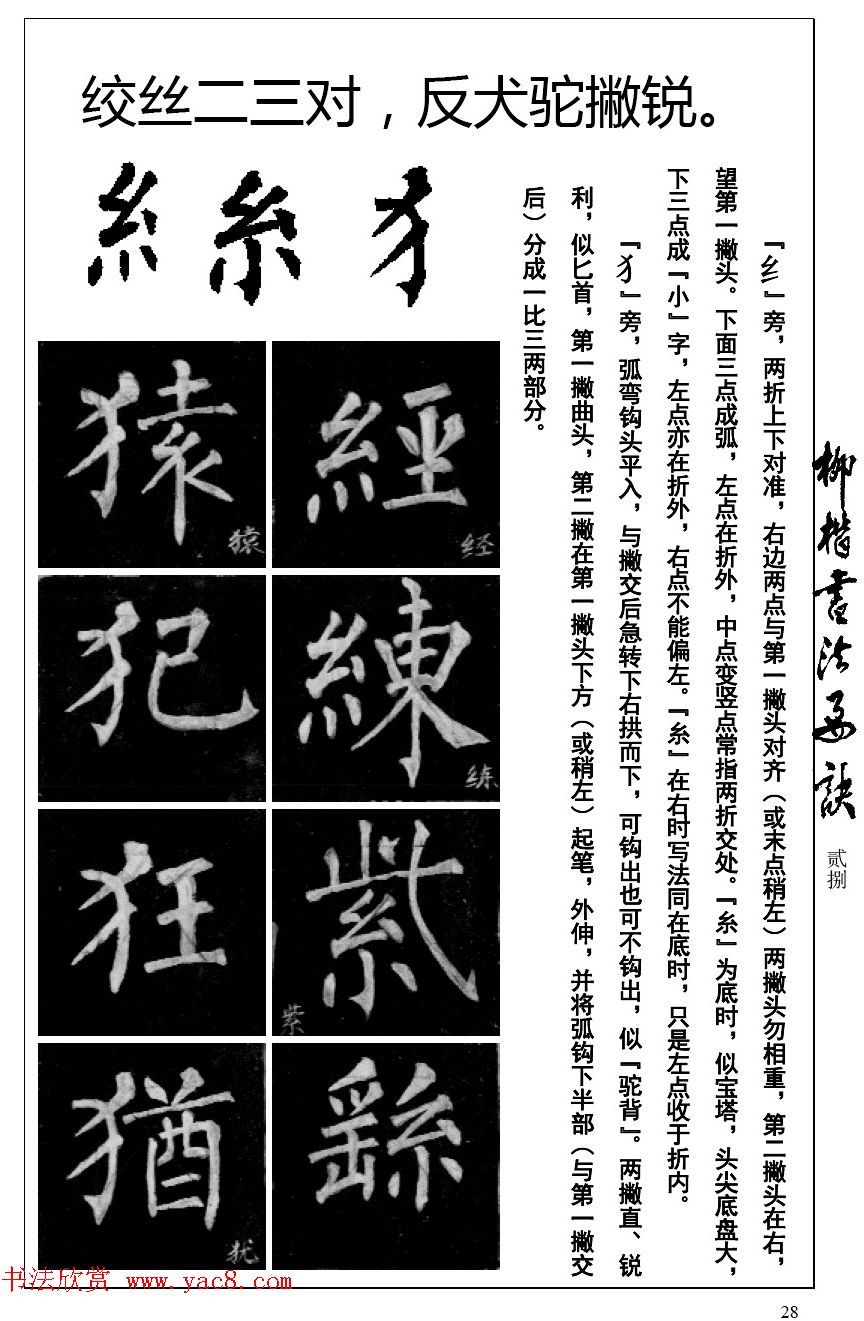 绞丝二三对，反犬驼撇锐。
糹 糸 犭
『纟』旁，两折上下对准，右边两点与第一撇头对齐（或末点稍左）两撇头勿相重，第二撇头在右，
望第一撇头。下面三点成弧，左点在折外，中点变竖点常指两折交处。『糸』为底时，似宝塔，头尖底盘大，
下三点成『小』字，左点亦在折外，右点不能偏左。『糸』在右时写法同在底时，只是左点收于折内。
『犭』旁，弧弯钩头平入，与撇交后急转下右拱而下，可钩出也可不钩出，似『驼背』。两撇直、锐
利，似匕首，第一撇曲头，第二撇在第一撇头下方（或稍左）起笔，外伸，并将弧钩下半部（与第一撇交
后）分成一比三两部分。
經 经
猿 猿
練 练
犯
紫 紫
狂
繇
猶 犹
柳楷书法要诀
贰捌
书法欣赏 www.yac8.com
28